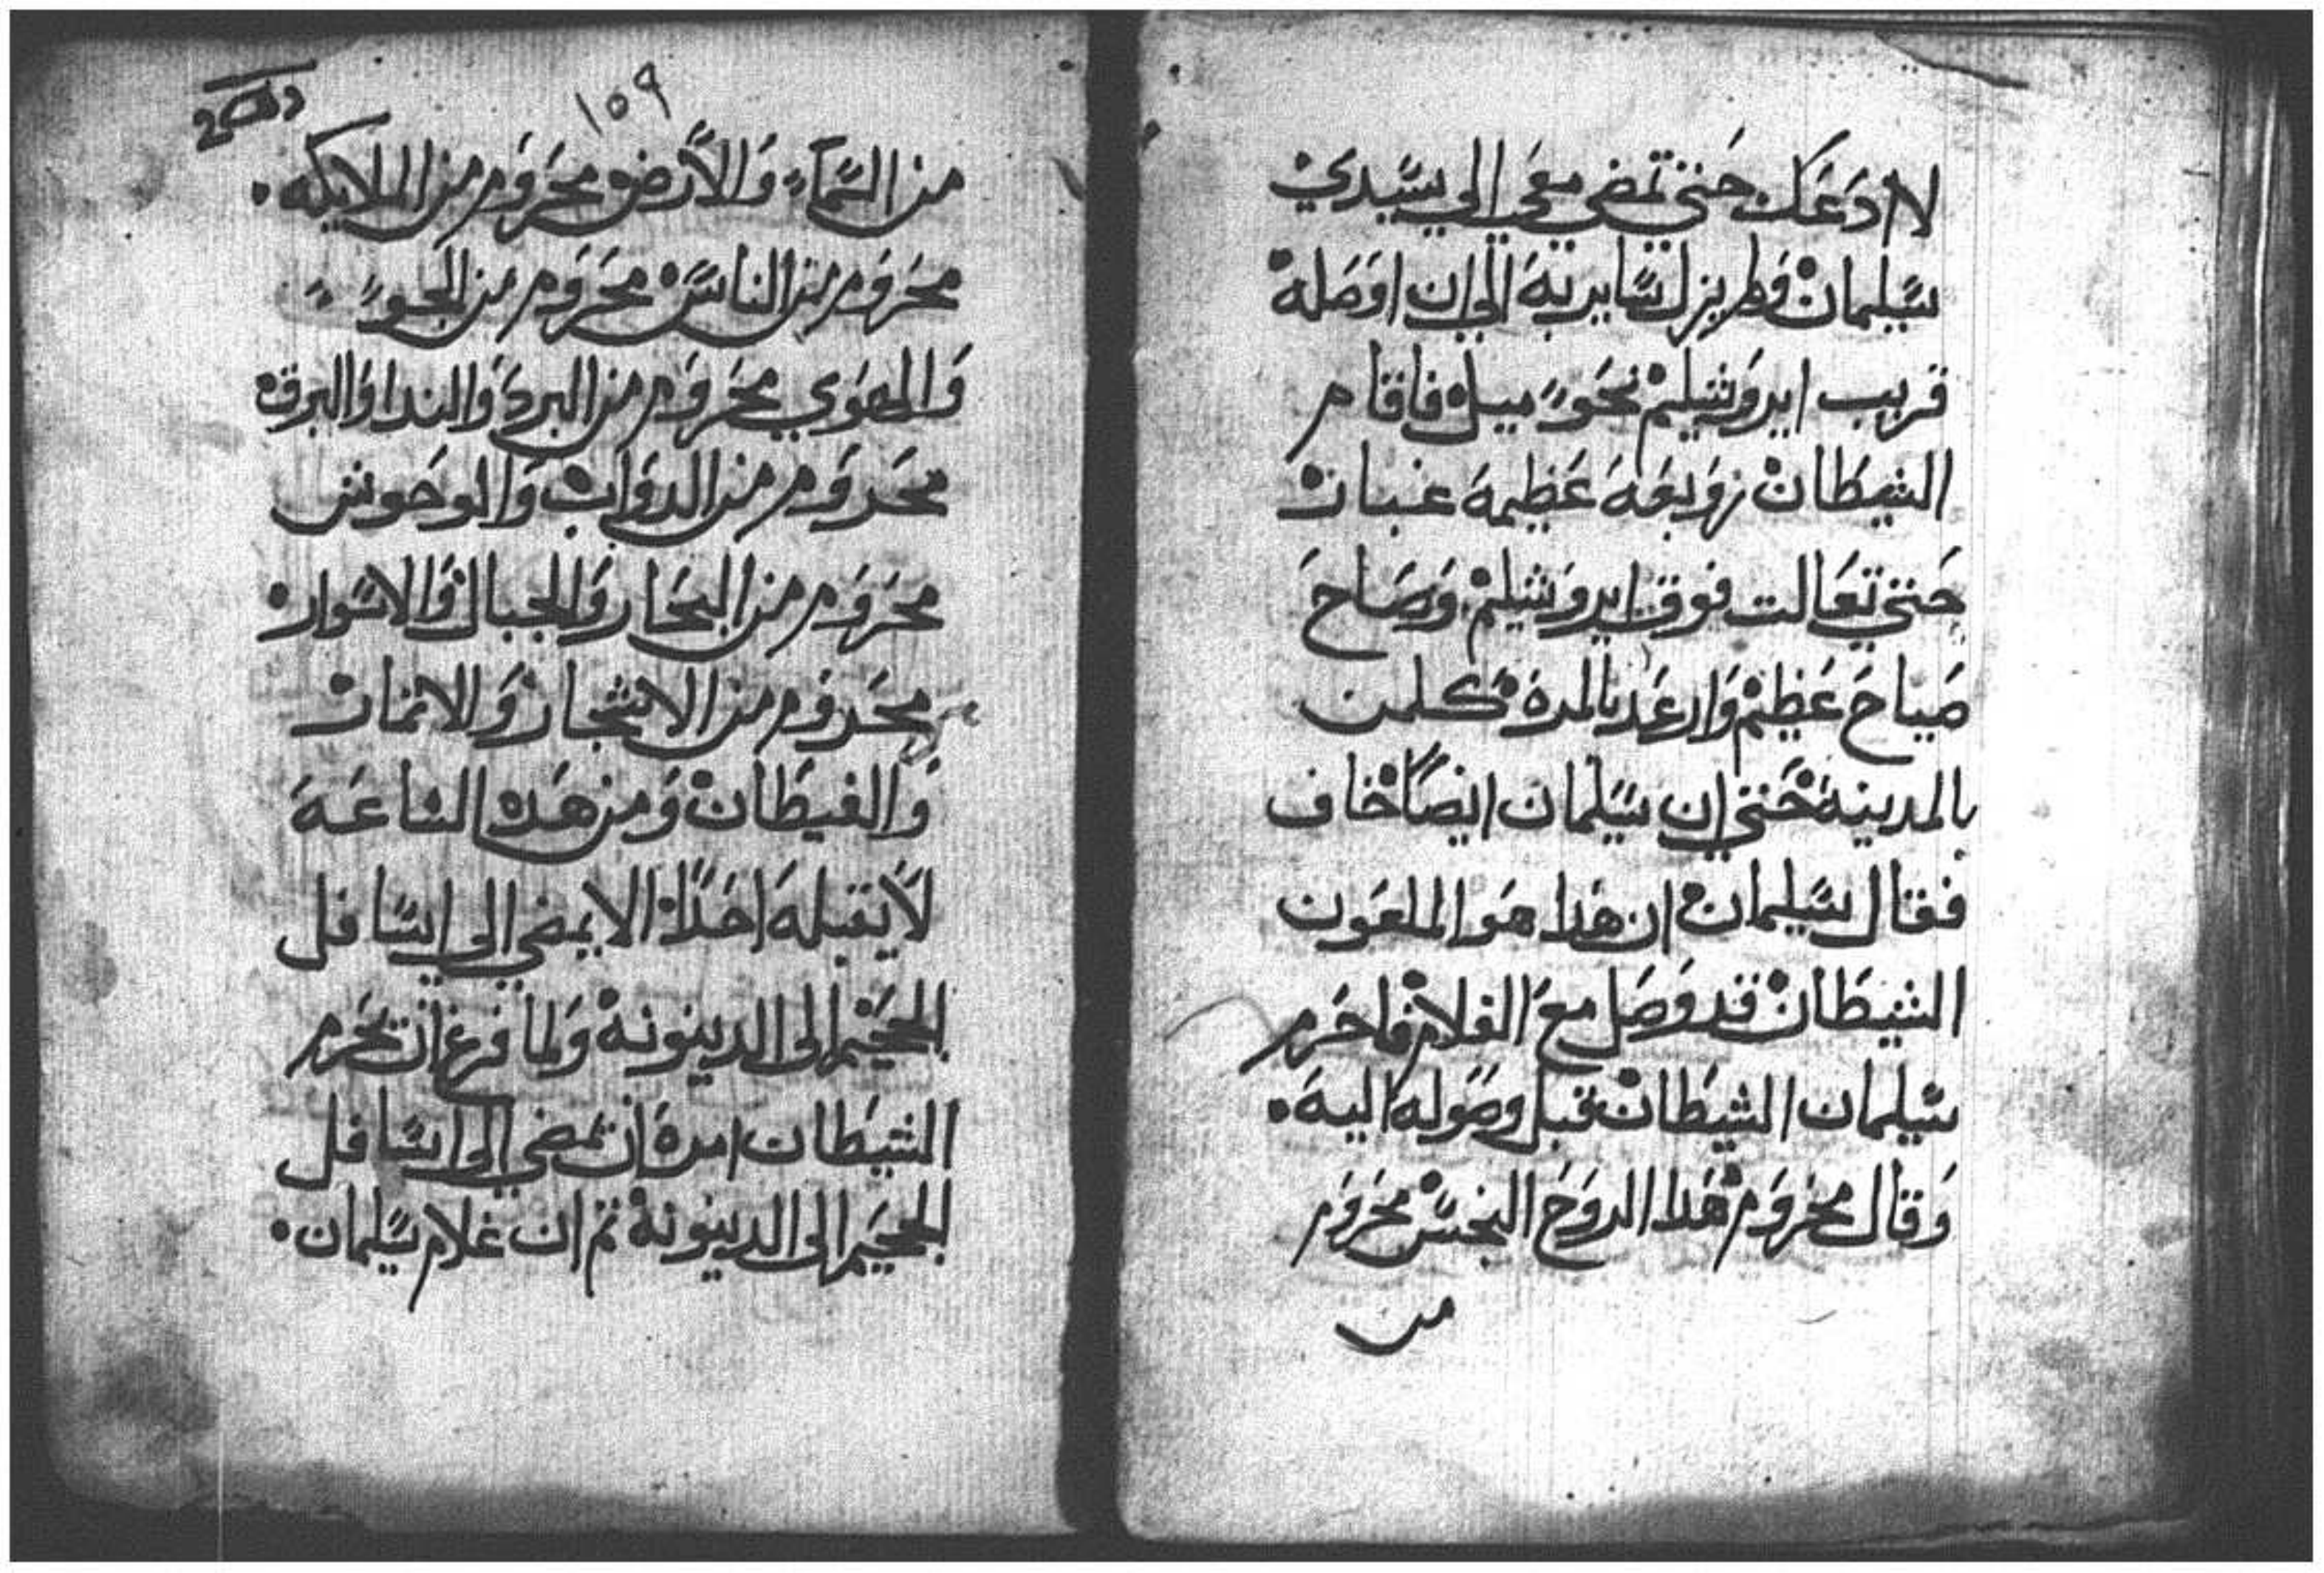 لا ادعك حتي تمضي معي الي سيدي
سليمان فلم يزل سايربه الي ان اوصله
قريب ايروشليم نحو ميل فاقام
الشيطان زوبعه عظيمه غبار
حتي تعالت فوق ايروشليم وصاح
صياح عظيم وارعد بالمرة كلمن
بالمدينة حتي ان سليمان ايضاً خاف
فقال سليمان ان هذا هو الملعون
الشيطان قد وصل مع الغلام فاحرم
سليمان الشيطان قبل وصوله اليه.
وقال محروم هذا الروح النجس محروم
من
١٥٩
من السماء والأرض محروم من الملايكه.
محروم من الناس محروم من الجو
والهوي محروم من البرد والندا والبرق
محروم من الدواب والوحوش
محروم من البحار والجبال والاسوار
محروم من الاشجار والاثمار
والغيطان ومن هذه الساعه
لا يقبله احداً الا يمضي الي اسافل
الجحيم الى الدينونة ولما فرغ ان يحرم
الشيطان امره ان تمضي الي اسافل
الجحيم الى الدينونة ثم ان غلام سليمان.